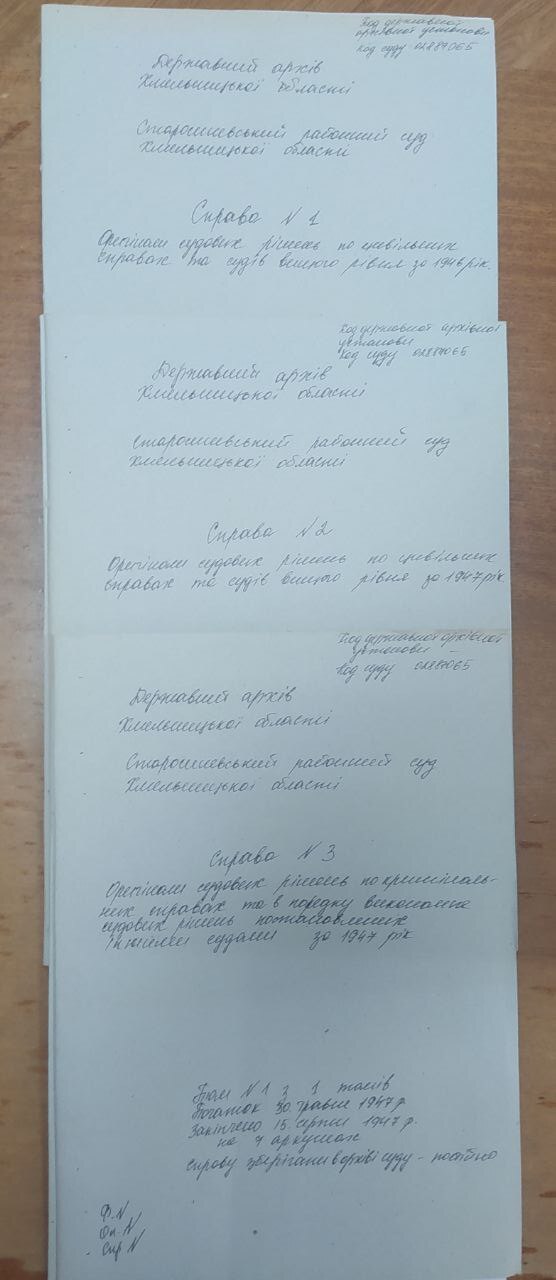 Код державної
архівної установи
Код суду 02887065
Державний архів
Хмельницької області
Старосинявський районний суд
Хмельницької області
Справа N 1
Оригінали судових рішень по цивільних
справах та судів вищого рівня за 1946 рік.
Код державної архівної
установи
Код суду 02887065
Державний архів
Хмельницької області
Старосинявський районний суд
Хмельницької області
Справа N 2
Оригінали судових рішень по цивільних
справах та судів вищого рівня за 1947 рік
Код державної архівної
установи
Код суду 02887065
Державний архів
Хмельницької області
Старосинявський районний суд
Хмельницької області
Справа N 3
Оригінали судових рішень по криміналь-
них справах та в порядку виконання
судових рішень постановлених
іншими судами за 1947 рік
Том N 1 з 1 томів
Початок 30 травня 1947 р.
Закінчено 15 серпня 1947 р.
на 7 аркушах
Справу зберігати в архіві суду - постійно
Ф. N
Оп. N
Спр N